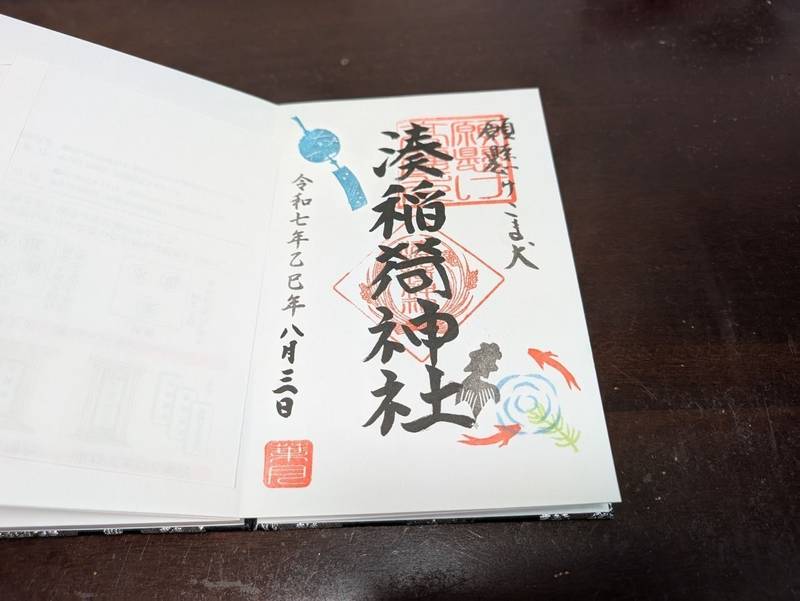 願懸けこま犬
湊稲荷神社
令和七年乙巳年八月三日
葉月